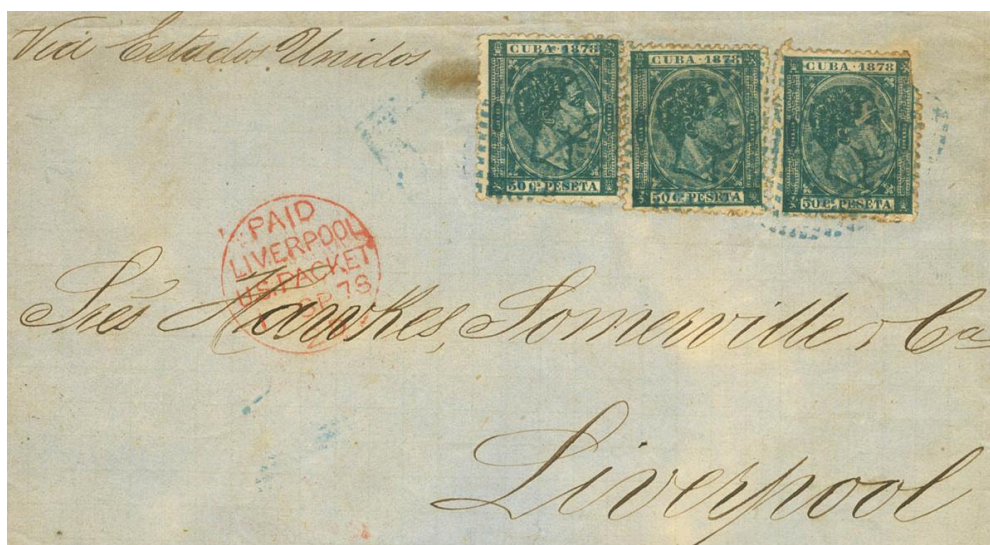 Via Estados Unidos
CUBA · 1878
50 Cs PESETA
CUBA · 1878
50 Cs PESETA
CUBA · 1878
50 Cs PESETA
PAID
LIVERPOOL
U.S. PACKET
SP 78
Sres Hawkes, Somerville & Ca
Liverpool